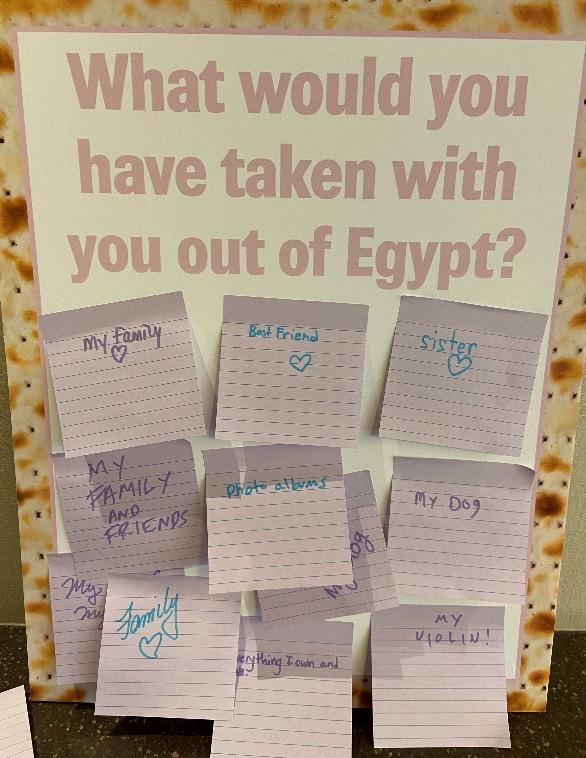 What would you
have taken with
you out of Egypt?
My Family
Best Friend
sister
MY
FAMILY
AND
FRIENDS
Photo albums
MY DOG
My
My
Family
MY
VIOLIN!
I own and